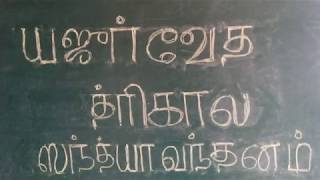 யஜுர்வேத
த்ரிகால
ஸந்த்யா வந்தனம்